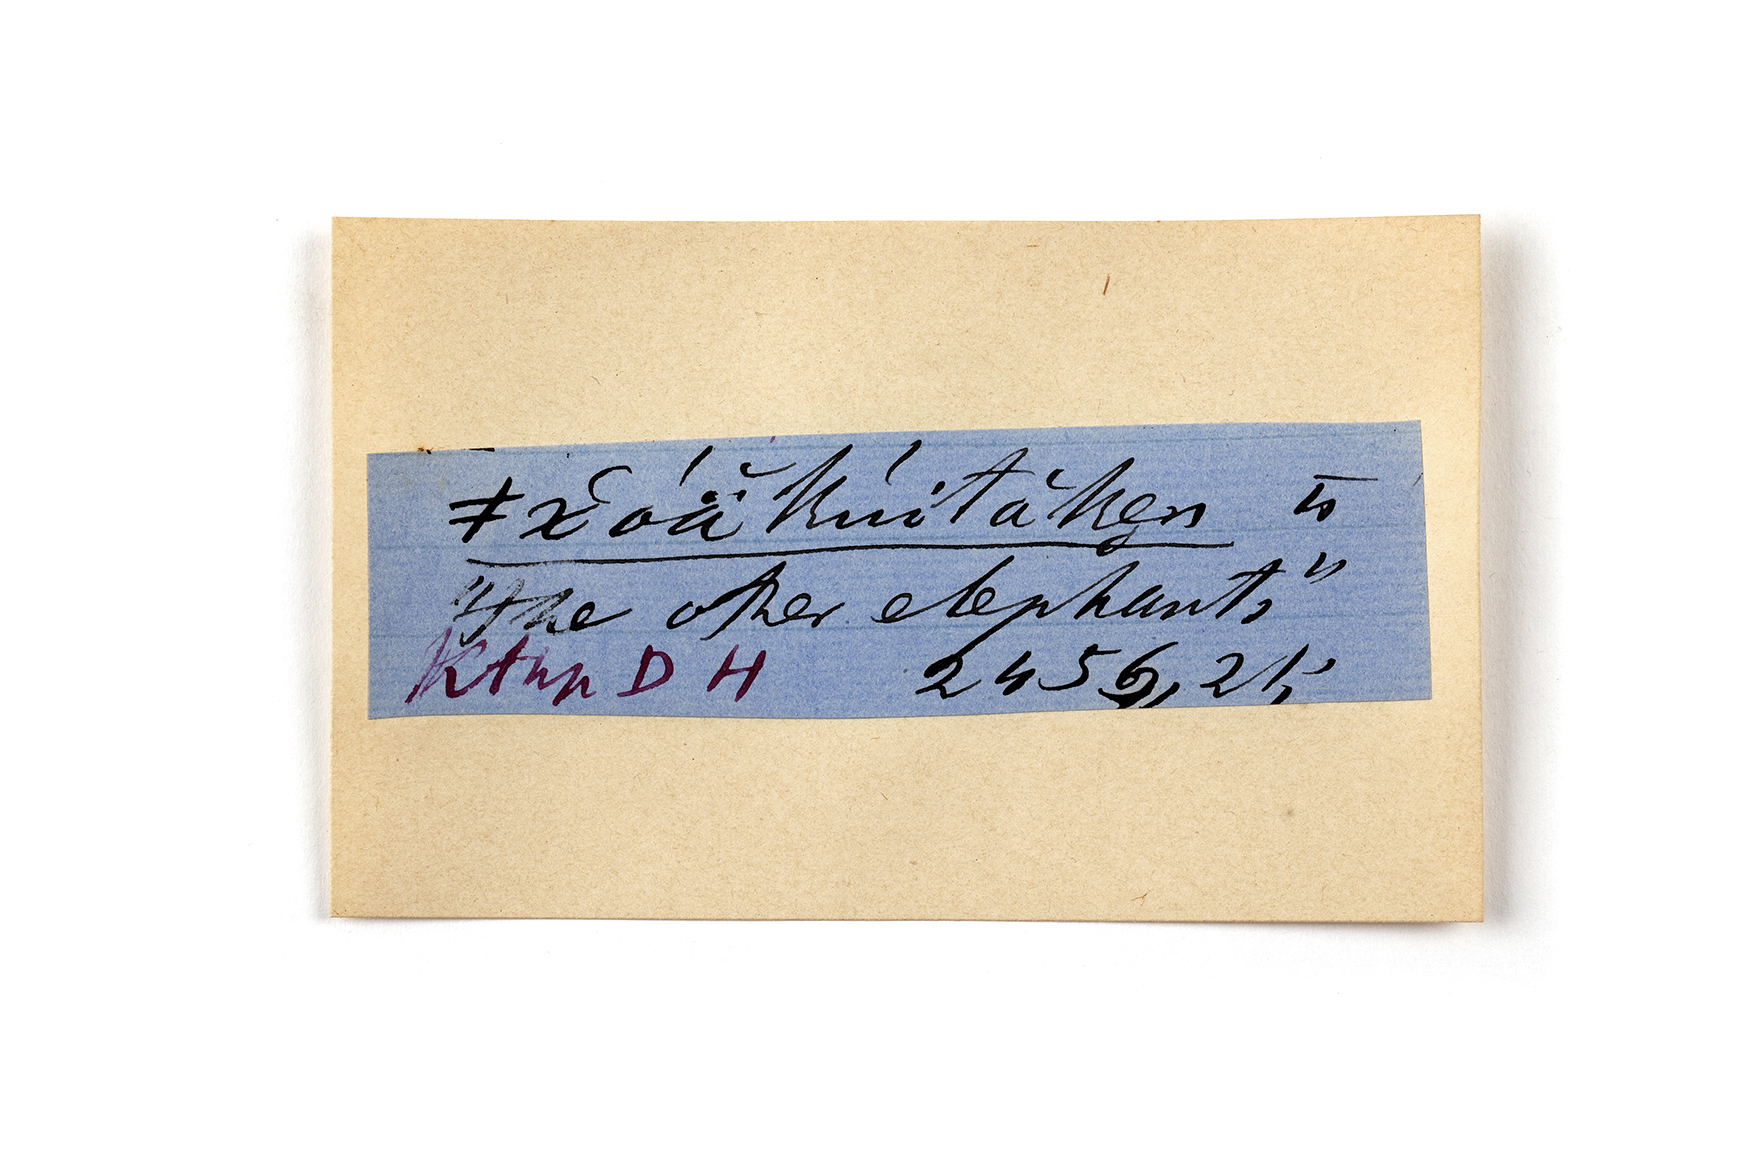 ǂx̆óä̆ kúitáken to
"the other elephants"
Kthn D H 2456, 2